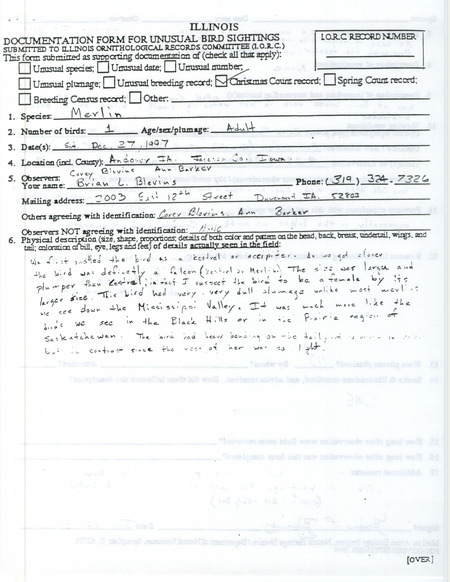 ILLINOIS
DOCUMENTATION FORM FOR UNUSUAL BIRD SIGHTINGS
SUBMITTED TO ILLINOIS ORNITHOLOGICAL RECORDS COMMITTEE (I.O.R.C.)
I.O.R.C. RECORD NUMBER
This form submitted as supporting documentation of (check all that apply):
Unusual species; Unusual date; Unusual number;
Unusual plumage; Unusual breeding record; Christmas Count record; Spring Count record;
Breeding Census record; Other:
1. Species: Merlin
2. Number of birds: 1 Age/sex/plumage: Adult
3. Date(s): Sat Dec 27, 1997
4. Location (incl. County): Andover IA. Co. Iowa
5. Observers: Corey Blevins Ann Barker
Your name: Brian L. Blevins Phone: (319) 324-7326
Mailing address: 2003 East 12th Street Davenport IA. 52803
Others agreeing with identification: Corey Blevins, Ann Barker
Observers NOT agreeing with identification: None
6. Physical description (size, shape, proportions; details of both color and pattern on the head, back, breast, undertail, wings, and
tail; coloration of bill, eye, legs and feet) of details actually seen in the field:
We first spotted the bird as a kestrel or accipiter. As we got closer
the bird was definetly a falcon (kestrel or Merlin). The size was large and
plumper than kestrel, in fact I suspect the bird to be a female by its
larger size. This bird had very, very dull plumage unlike most merlins
we see down the Mississippi Valley. It was much more like the
birds we see in the Black Hills or in the Prairie region of
Saskatchewan. The bird had heavy banding on the tail
but in contrast since the rest of her was so light.
[OVER]